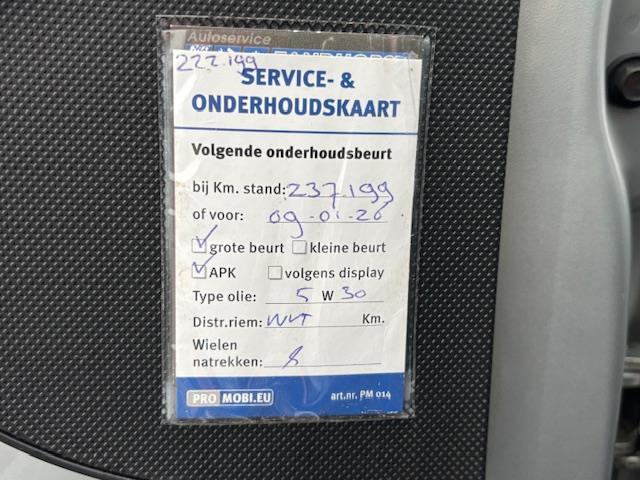 Autoservice
222.199
SERVICE- &
ONDERHOUDSKAART
Volgende onderhoudsbeurt
bij Km. stand: 237.199
of voor: 09-01-26
grote beurt kleine beurt
APK volgens display
Type olie: 5 W 30
Distr.riem: NVT Km.
Wielen
natrekken:
PROMOBI.EU art.nr. PM 014